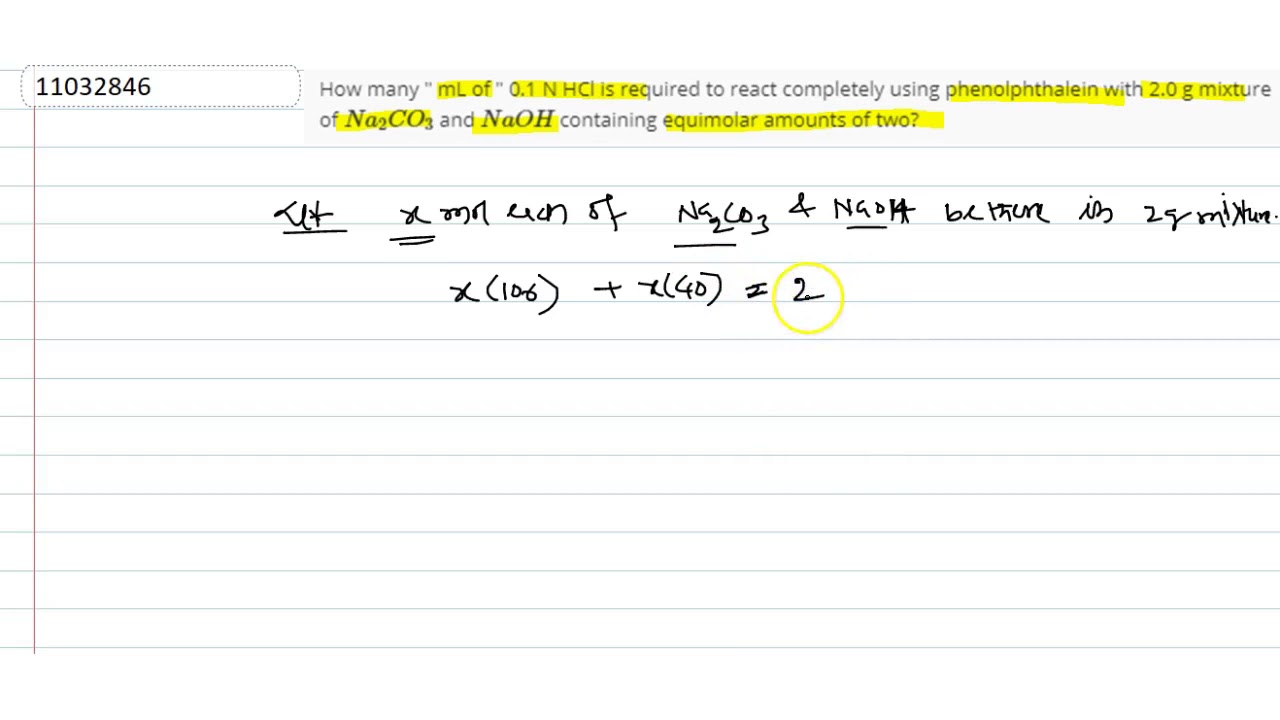 11032846
How many " mL of " 0.1 N HCl is required to react completely using phenolphthalein with 2.0 g mixture
of Na₂CO₃ and NaOH containing equimolar amounts of two?
Let x mol each of Na₂CO₃ & NaOH be there in 2g mixture.
x(106) + x(40) = 2